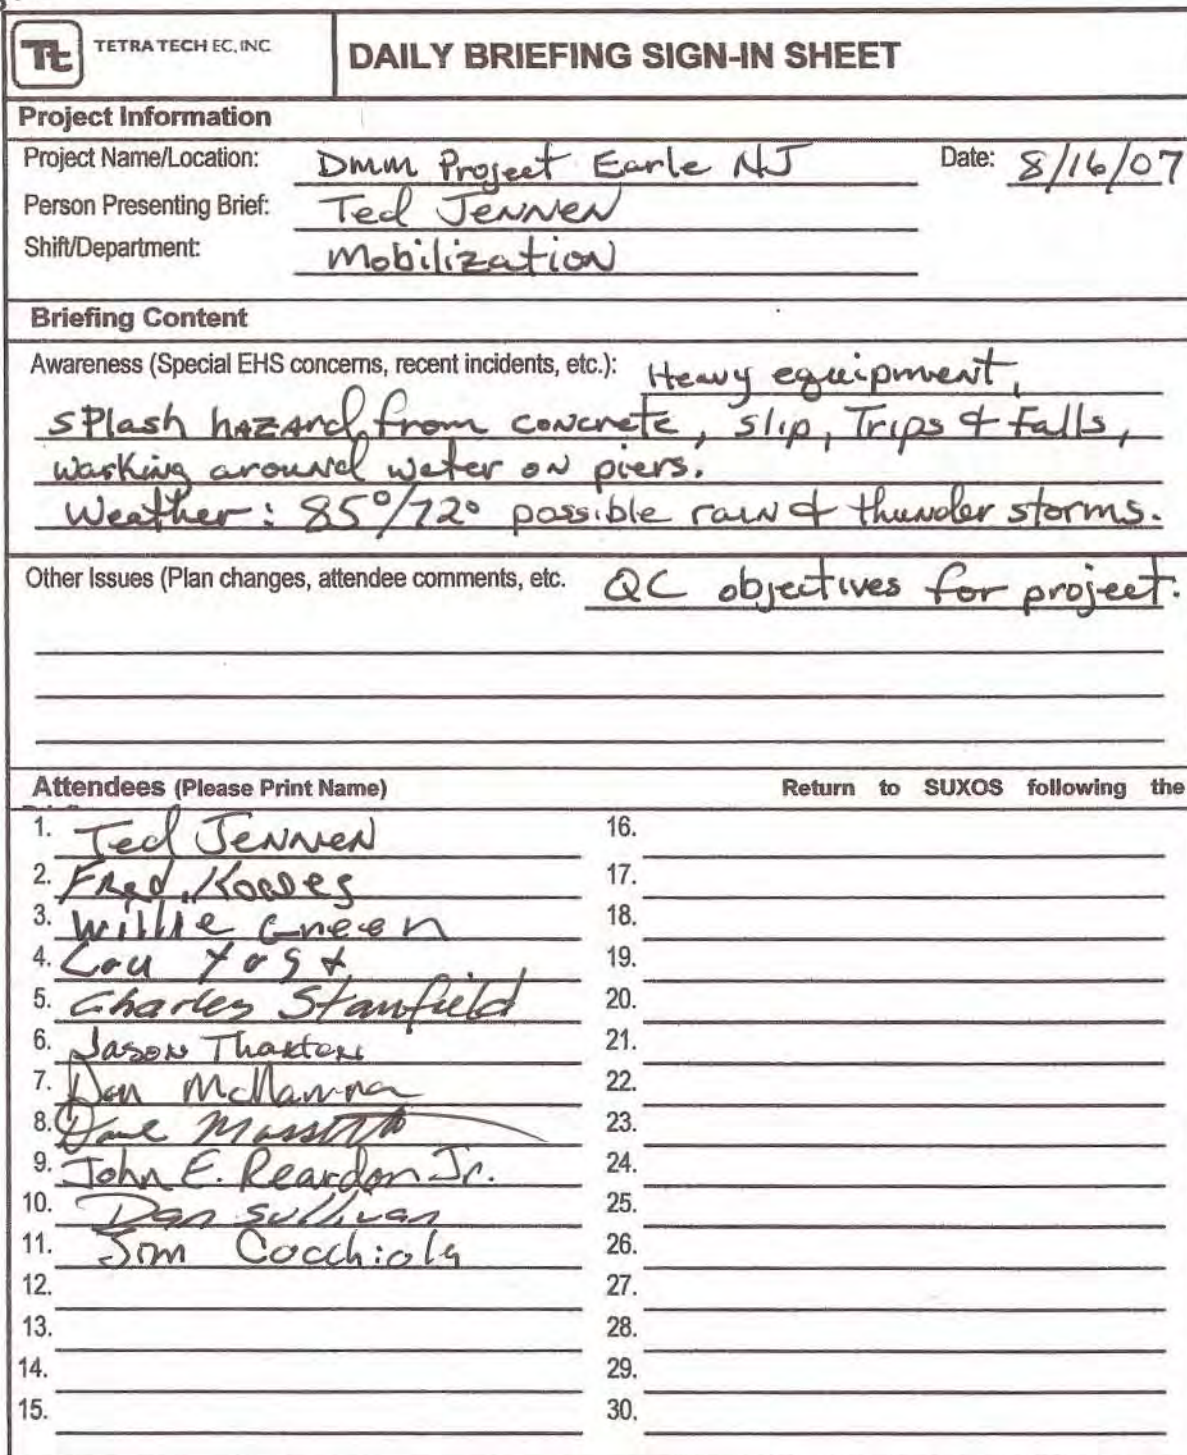 Tt TETRA TECH EC, INC
DAILY BRIEFING SIGN-IN SHEET
Project Information
Project Name/Location: Dmm Project Earle NJ Date: 8/16/07
Person Presenting Brief: Ted Jennen
Shift/Department: Mobilization
Briefing Content
Awareness (Special EHS concerns, recent incidents, etc.): Heavy equipment,
splash hazard from concrete, slip, Trips & Falls,
working around water on piers.
Weather: 85°/72° possible rain & thunder storms.
Other Issues (Plan changes, attendee comments, etc. QC objectives for project.
Attendees (Please Print Name) Return to SUXOS following the
1. Ted Jennen 16.
2. Fred 17.
3. Willie Green 18.
4. Lou Yost 19.
5. Charles Stanfield 20.
6. Jason Thaxton 21.
7. Don 22.
8. Dave 23.
9. John E. Reardon Jr. 24.
10. Dan Sullivan 25.
11. Jim Cocchiola 26.
12. 27.
13. 28.
14. 29.
15. 30.